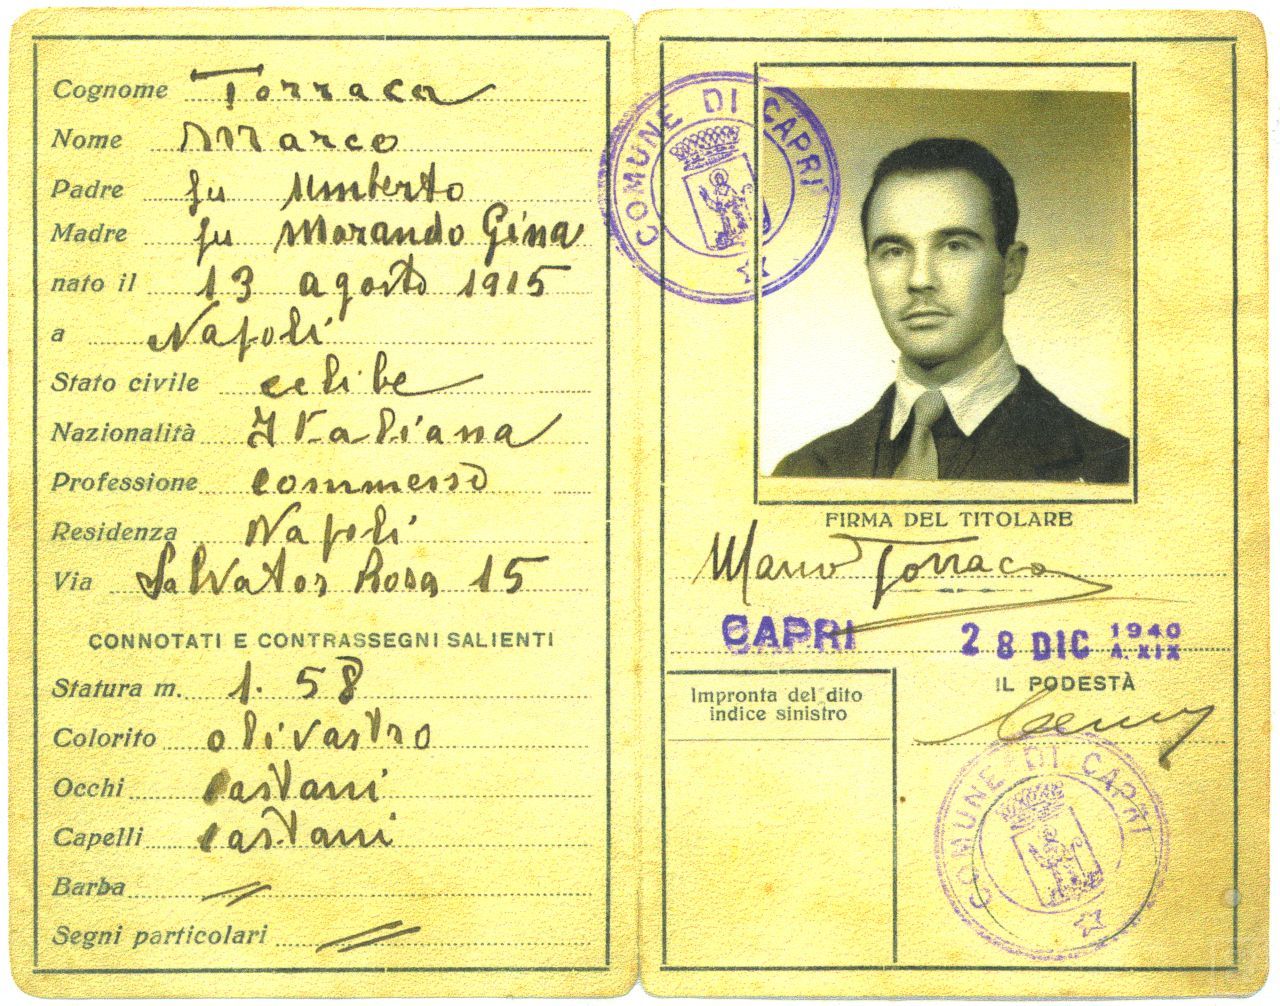 Cognome Torraca
Nome Marco
Padre fu Umberto
Madre fu Morando Gina
nato il 13 agosto 1915
a Napoli
Stato civile celibe
Nazionalità Italiana
Professione commesso
Residenza Napoli
Via Salvator Rosa 15
CONNOTATI E CONTRASSEGNI SALIENTI
Statura m. 1.58
Colorito olivastro
Occhi castani
Capelli castani
Barba
Segni particolari
COMUNE DI CAPRI
FIRMA DEL TITOLARE
Marco Torraca
CAPRI 28 DIC 1940
A. XIX
IL PODESTÀ
Impronta del dito
indice sinistro
COMUNE DI CAPRI